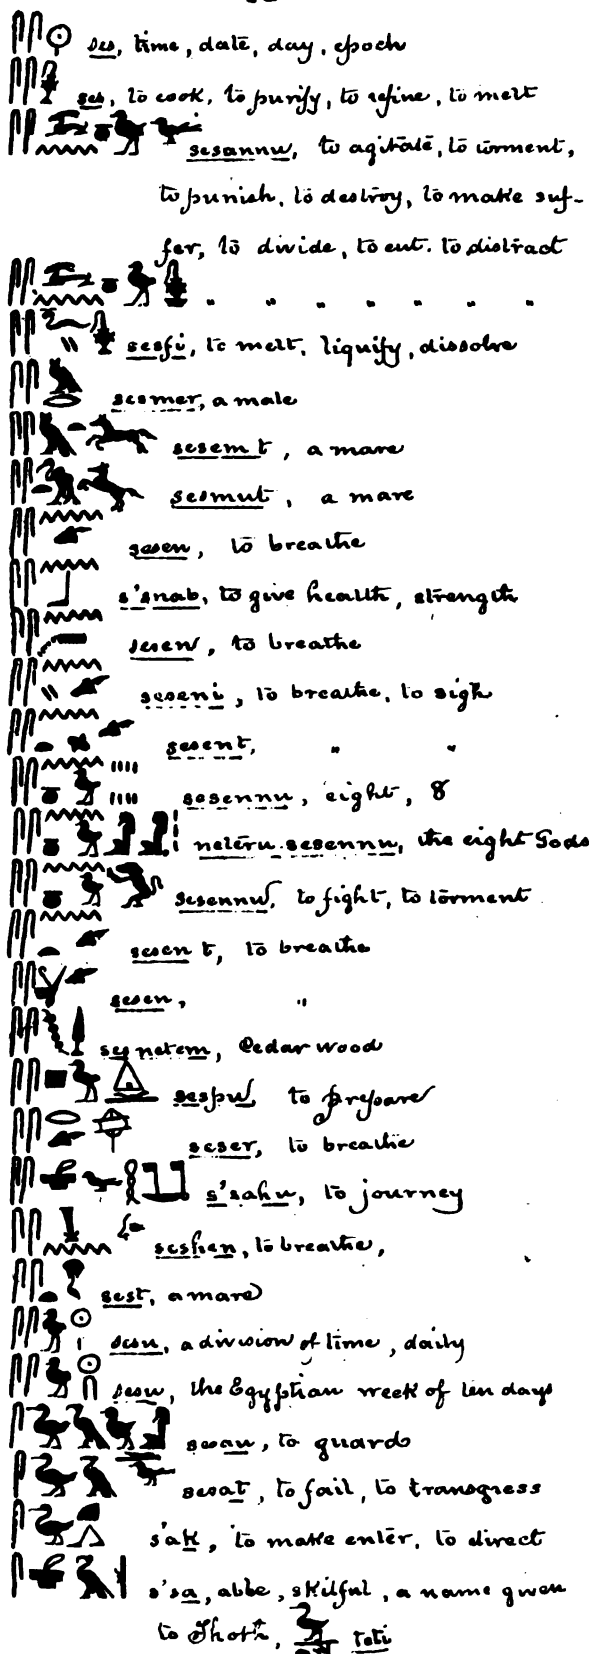 ses, time, date, day, epoch
ses, to cook, to purify, to refine, to melt
sesannu, to agitate, to torment,
to punish, to destroy, to make suf-
fer, to divide, to cut. to distract
" " " " " " "
sesfi, to melt, liquify, dissolve
sesmer, a male
sesem t, a mare
sesmut, a mare
sesen, to breathe
s'snab, to give health, strength
sesen, to breathe
seseni, to breathe, to sigh
sesent, " "
sesennu, eight, 8
neteru sesennu, the eight Gods
sesennu, to fight, to torment
sesen t, to breathe
sesen, "
ses netem, Cedar wood
sespu, to prepare
seser, to breathe
s'sahu, to journey
seshen, to breathe,
sest, a mare
sesu, a division of time, daily
sesu, the Egyptian week of ten days
sesau, to guard
sesat, to fail, to transgress
s'ak, to make enter, to direct
s'sa, abbe, skilful, a name given
to Thoth, teti